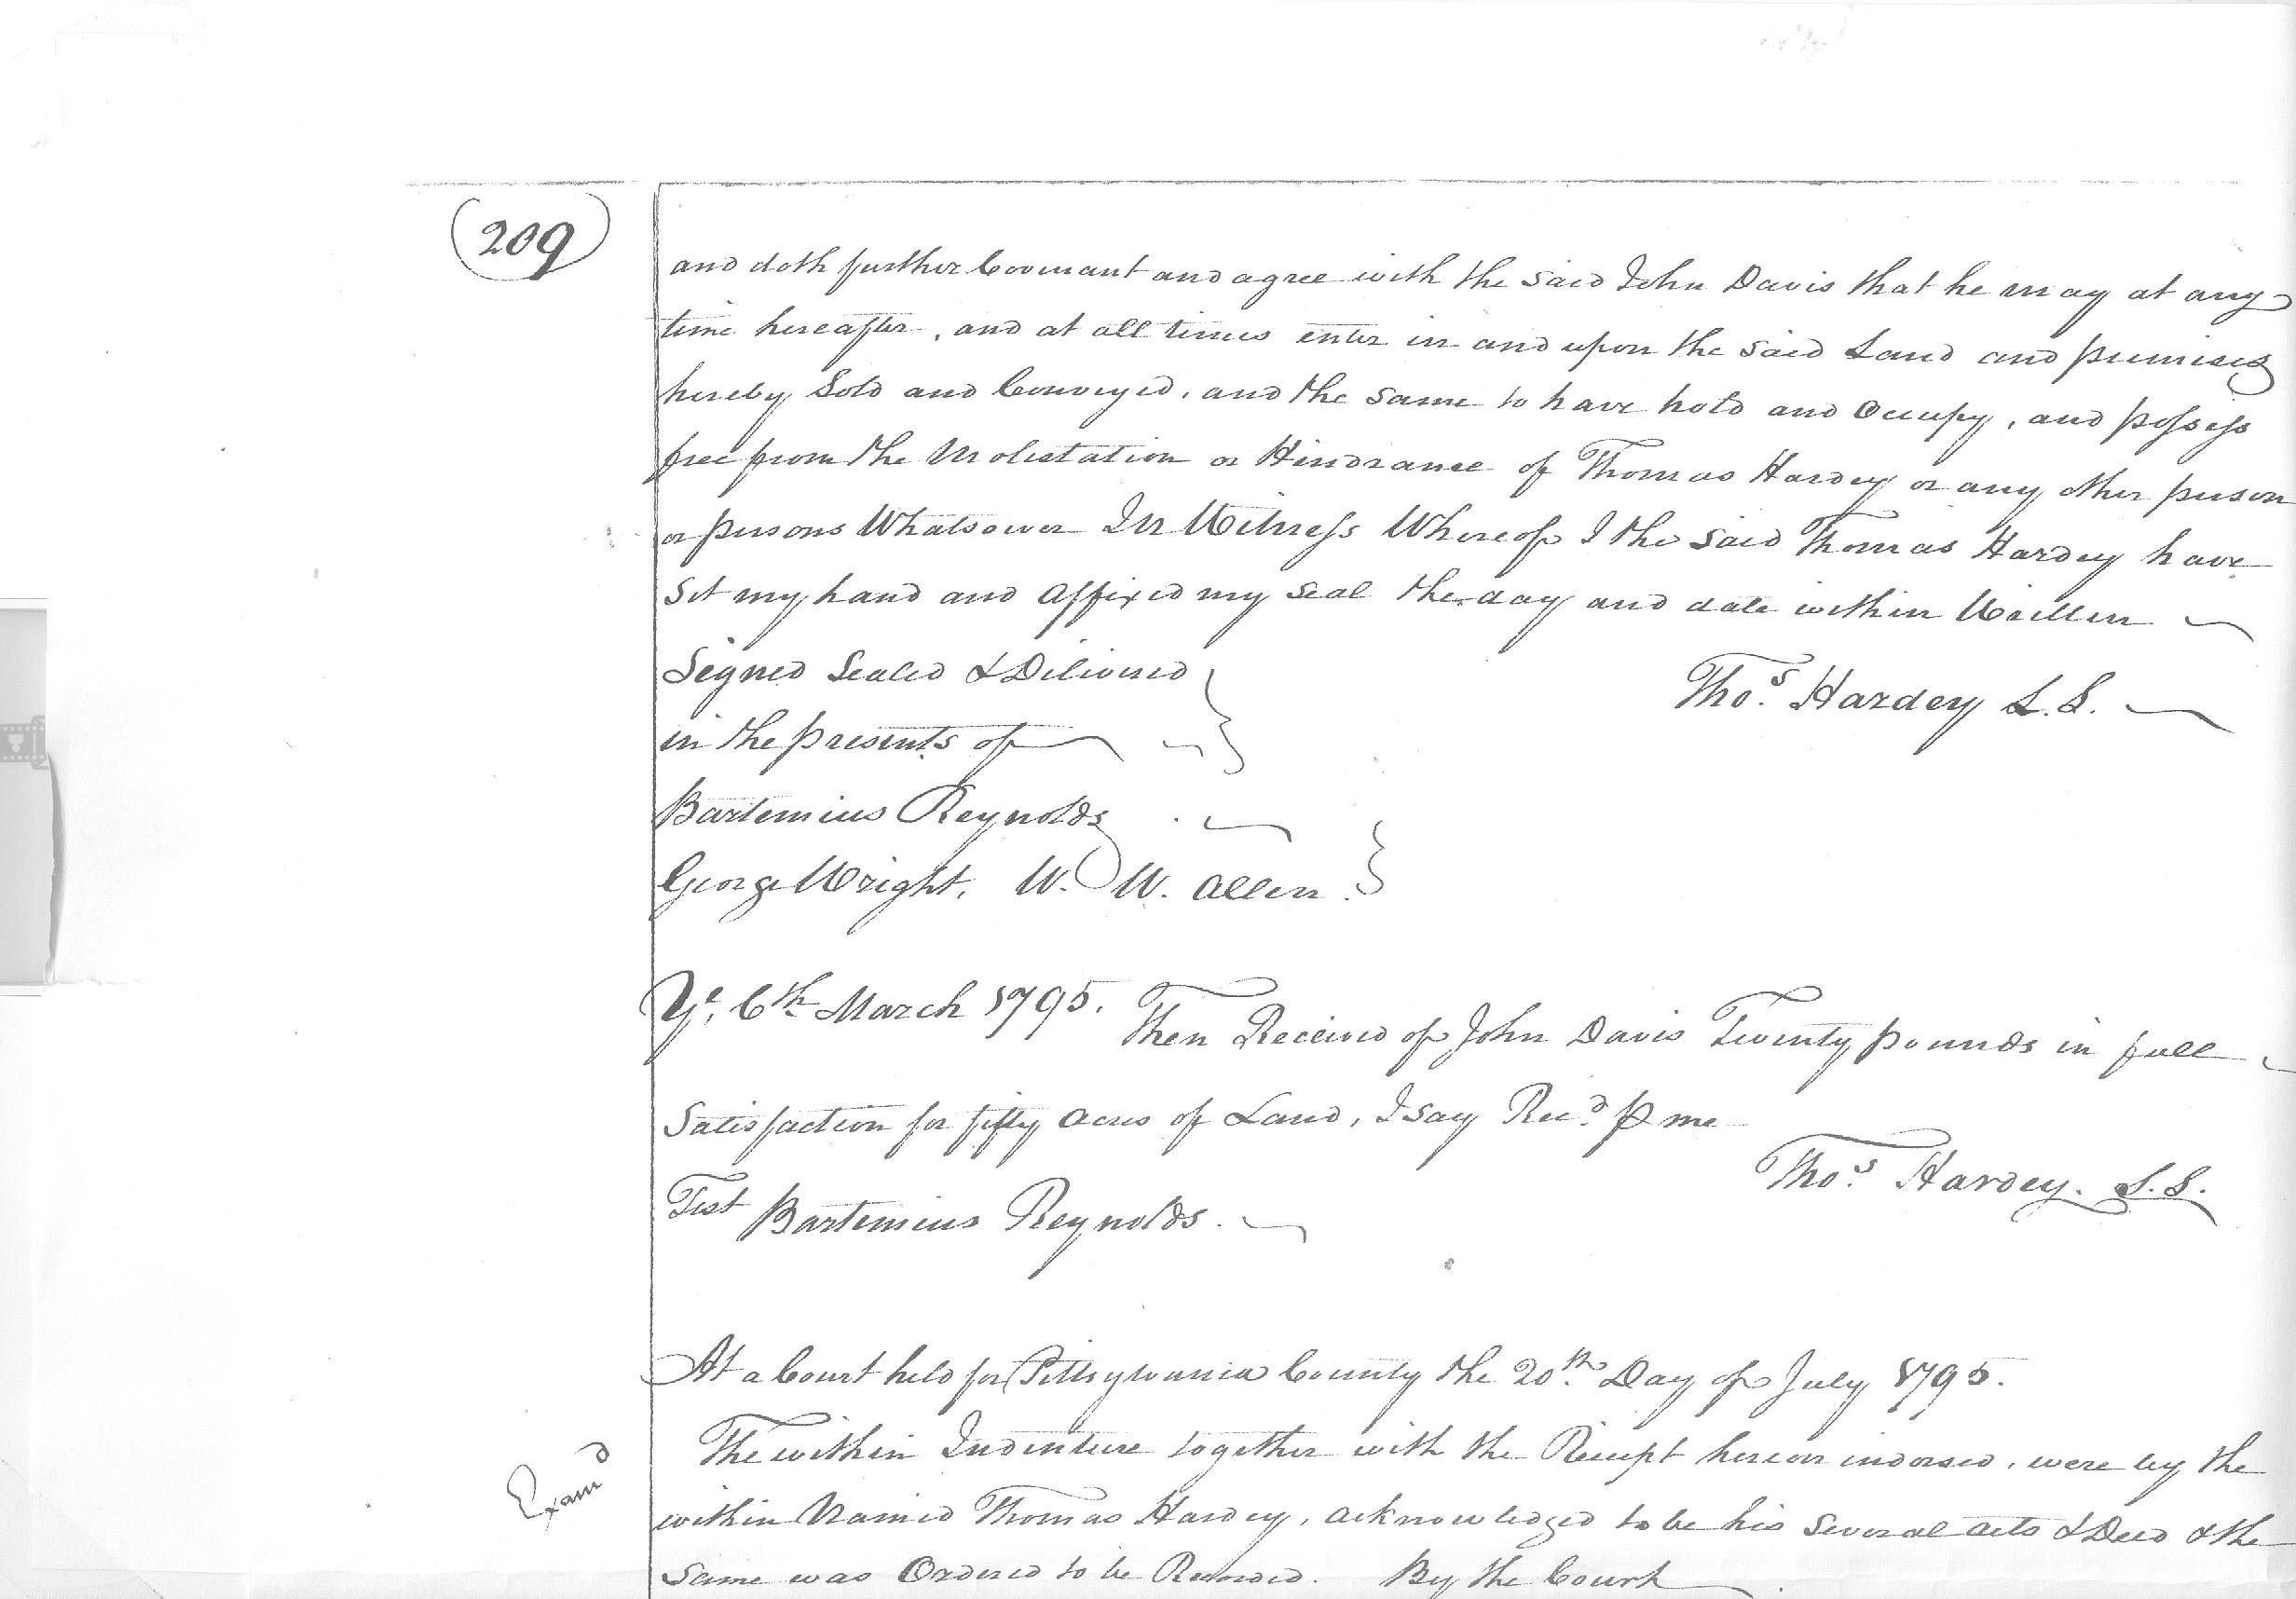 (209)
and doth further Covenant and agree with the said John Davis that he may at any
time hereafter, and at all times enter in and upon the said Land and premises
hereby Sold and Conveyed, and the same to have hold and Occupy, and possess
free from the Molestation or Hindrance of Thomas Hardey or any other person
or persons Whatsoever In Witness Whereof I the said Thomas Hardey have
set my hand and affixed my seal the day and date within Written
Signed Sealed & Delivered
Thos. Hardey L.S.
in the presents of
Bartemius Reynolds
George Wright, W. W. Allen.
Ye. 6th March 1795. Then Received of John Davis Twenty pounds in full
Satisfaction for fifty Acres of Land, I say Recd. ⅌ me
Thos. Hardey. L.S.
Test Bartemius Reynolds.
At a Court held for Pittsylvania County the 20th. Day of July 1795.
The within Indenture together with the Receipt hereon indorsed, were by the
Examd
within Named Thomas Hardey, acknowledged to be his several acts & Deed & the
same was Ordered to be Recorded. By the Court